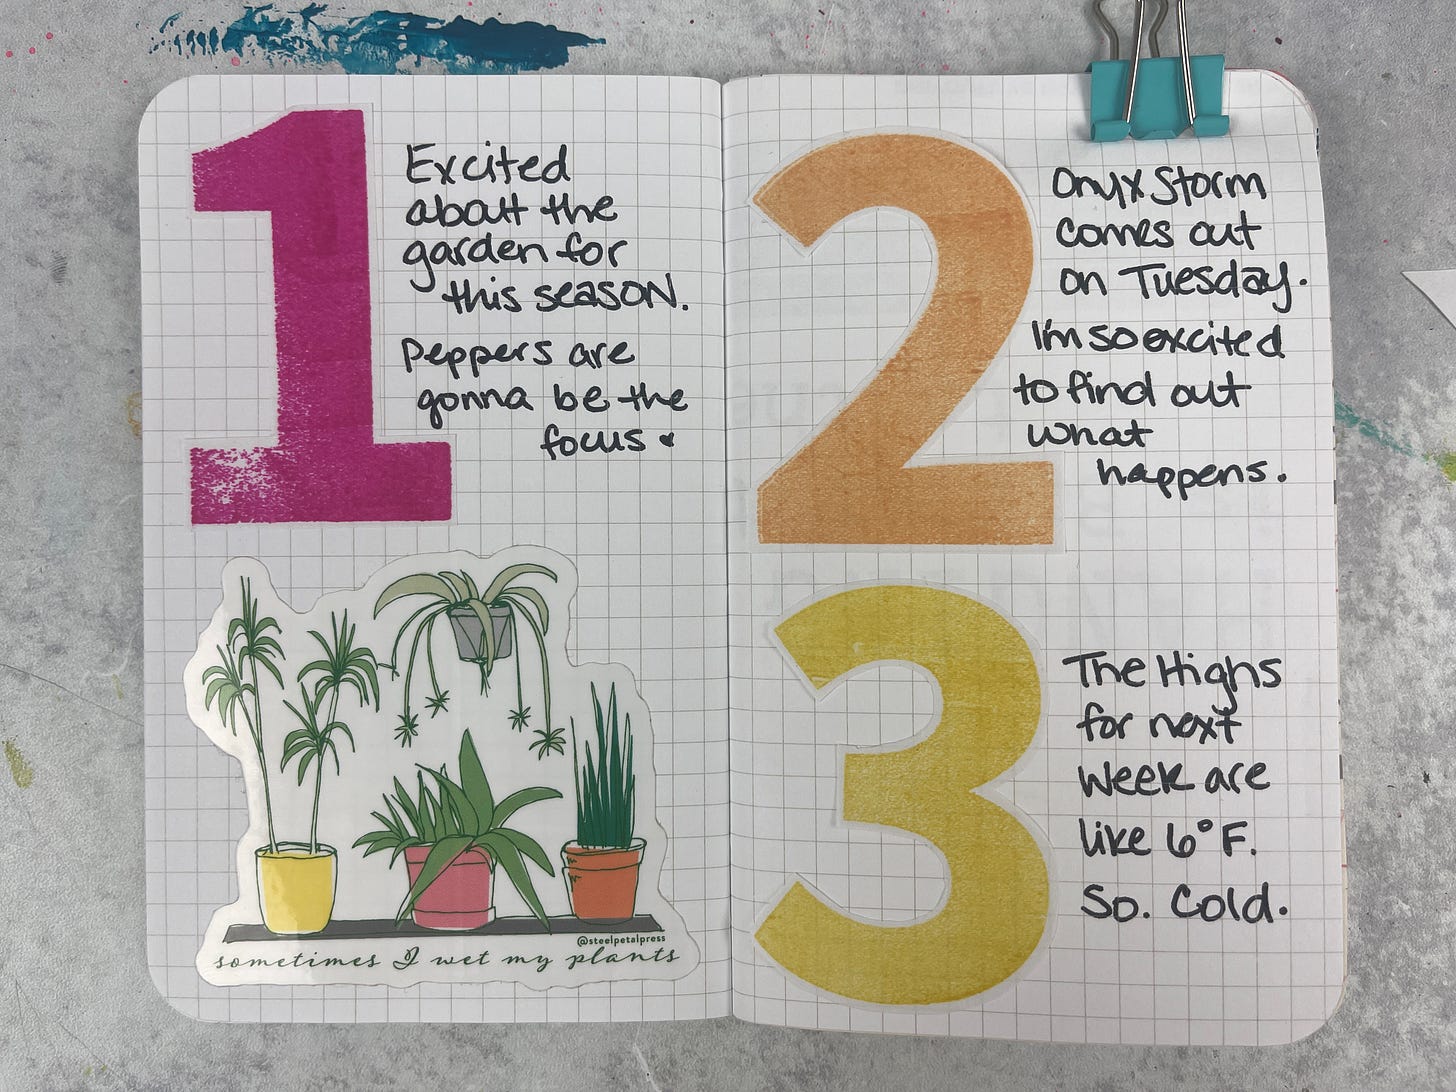 1
Excited
about the
garden for
this season.
Peppers are
gonna be the
focus
@steelpetalpress
sometimes I wet my plants
2
Onyx Storm
comes out
on Tuesday.
I'm so excited
to find out
what
happens.
3
The Highs
for next
week are
like 6°F.
So. Cold.